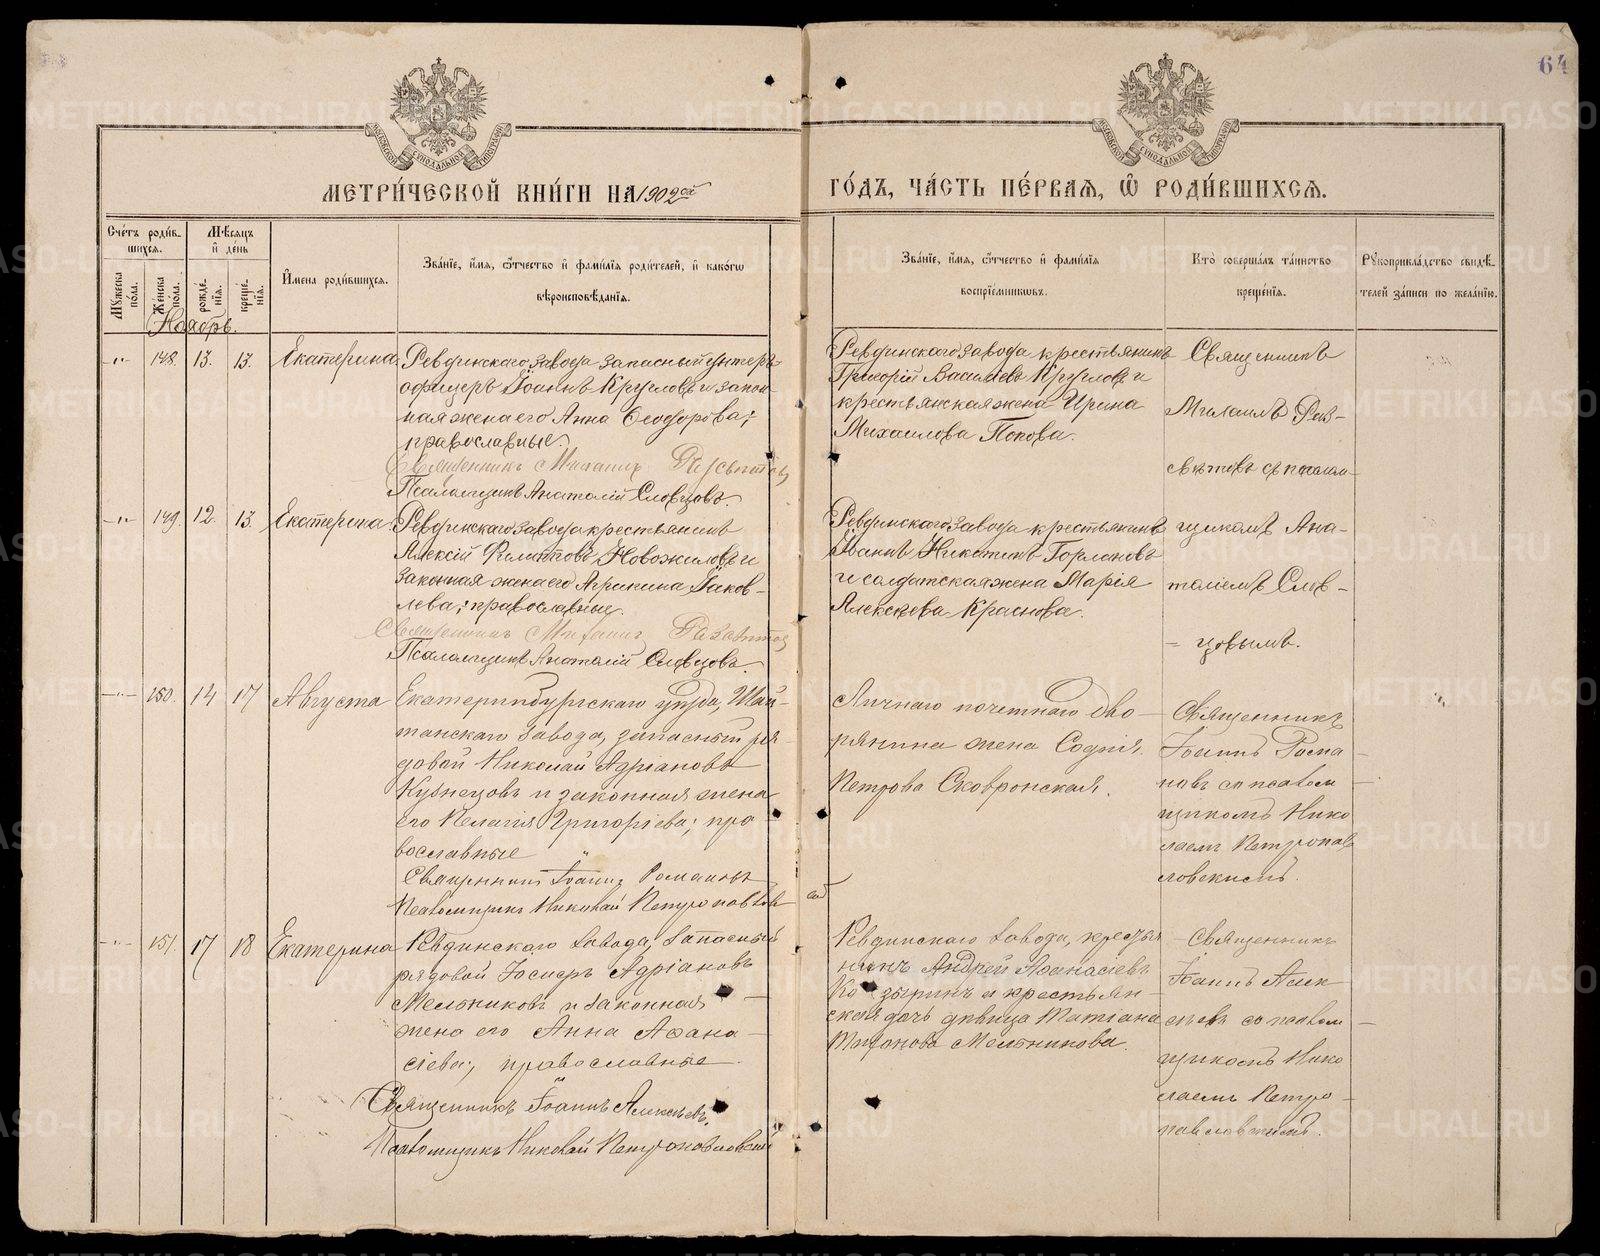 64
МЕТРИ́ЧЕСКОЙ КНИ́ГИ НА 1902ой
ГО́ДЪ, ЧА́СТЬ ПЕ́РВАЯ, Ѿ РОДИ́ВШИХСЯ.
Сче́тъ роди́в-
шихся.
Му́жеска по́ла.
Же́нска по́ла.
Мѣ́сяцъ
и҆ де́нь
рожде́-
нїя.
креще́-
нїя.
И҆мена роди́вшихся.
Зва́нїе, и҆́мя, ѻ҆́тчество и҆ фами́лїя роди́телей, и҆ како́гѡ
вѣроисповѣ́данїя.
Зва́нїе, и҆́мя, ѻ҆́тчество и҆ фами́лїя
воспрїе́мникѡвъ.
Кто̀ соверша́лъ та́инство
креще́нїя.
Рꙋкоприкла́дство свидѣ́-
телей за́писи по жела́нїю.
Ноябрь.
-"- 148. 13. 13. Екатерина
Ревдинскаго завода запасный унтеръ
офицеръ Іоаннъ Кругловъ и закон
ная жена его Анна Ѳеодорова;
православные.
Священникъ Михаилъ
Псаломщикъ Анатолій Словцовъ.
Ревдинскаго завода крестьянинъ
Григорій Васильевъ Кругловъ и
крестьянская жена Ирина
Михаилова Попова.
Священникъ
Михаилъ Раз-
свѣтовъ съ псалом-
-"- 149. 12. 13. Екатерина
Ревдинскаго завода крестьянинъ
Алексій Филипповъ Новожиловъ и
законная жена его Агрипина Іаков-
лева; православные.
Священникъ Михаилъ
Псаломщикъ Анатолій Словцовъ.
Ревдинскаго завода крестьянинъ
Іоаннъ Никитинъ Горлановъ
и солдатская жена Марія
Алексѣева Краснова.
щикомъ Ана-
толіемъ Слов-
- цовымъ.
-"- 150. 14 17 Августа
Екатеринбургскаго уѣзда, Шай-
танскаго завода, запасный ря-
довой Николай Адріановъ
Кузнецовъ и законная жена
его Пелагія Григоріева; пра
вославные
Священникъ Іоаннъ Романовъ
Псаломщикъ Николай Петропавлов
скій
Личнаго почетнаго дво-
рянина жена Софія
Петрова Сковронская.
Священникъ
Іоаннъ Рома-
новъ со псалом
щикомъ Нико
лаемъ Петропав
ловскимъ.
-"- 151. 17 18 Екатерина
Ревдинскаго завода, запасный
рядовой Іосифъ Адріановъ
Мельниковъ и законная
жена его Анна Аѳана-
сіева; православные
Священникъ Іоаннъ Алексѣевъ.
Псаломщикъ Николай Петропавловскій
Ревдинскаго завода, крестья
нинъ Андрей Аѳанасіевъ
Козыринъ и крестьян
ская дочь дѣвица Татіана
Мельникова.
Священникъ
Іоаннъ Алек
сѣевъ со псалом-
щикомъ Нико
лаемъ Петро-
павловскимъ.